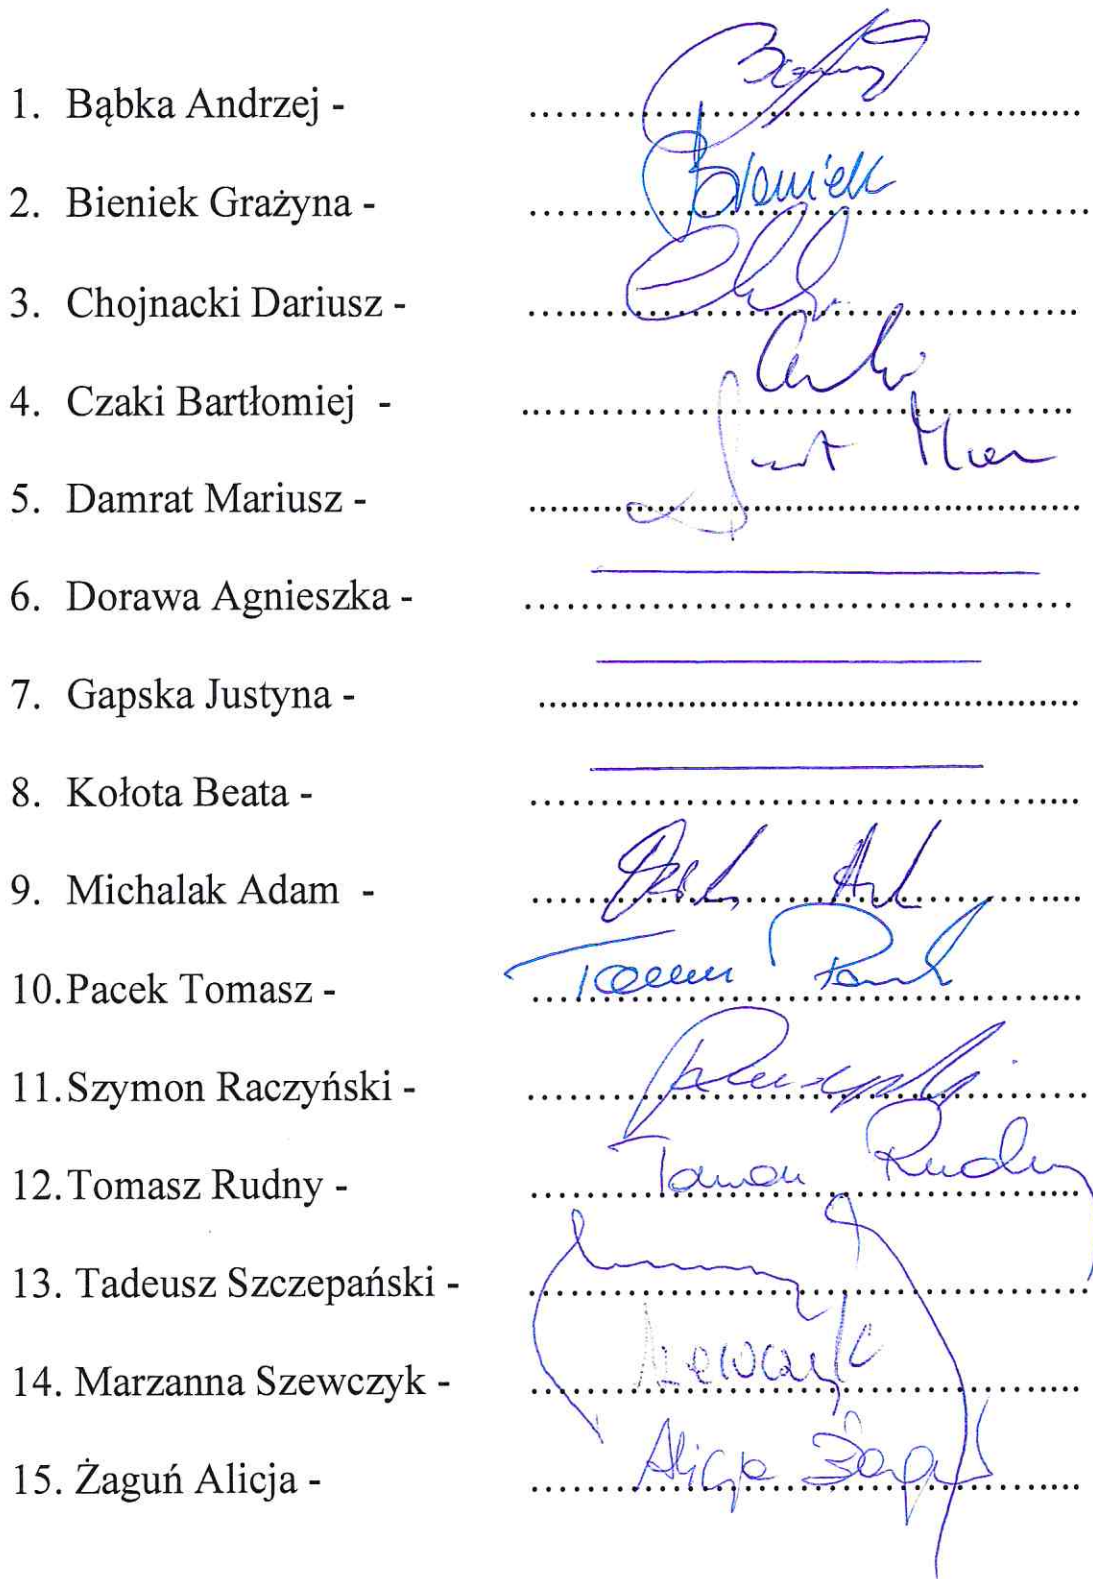 1. Bąbka Andrzej - ........................................
2. Bieniek Grażyna - ........................................ Bieniek
3. Chojnacki Dariusz - ........................................
4. Czaki Bartłomiej - ........................................
5. Damrat Mariusz - ........................................
6. Dorawa Agnieszka - ........................................
7. Gapska Justyna - ........................................
8. Kołota Beata - ........................................
9. Michalak Adam - ........................................
10.Pacek Tomasz - ........................................
11.Szymon Raczyński - ........................................
12.Tomasz Rudny - ........................................
13. Tadeusz Szczepański - ........................................
14. Marzanna Szewczyk - ........................................
15. Żaguń Alicja - ........................................ Alicja Żaguń